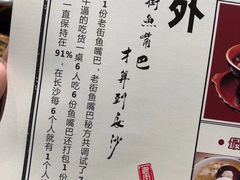 外
街鱼嘴巴
才算到长沙
1份老街鱼嘴巴，老街鱼嘴巴秘方共调试了1
牛逼的吃货一桌6人吃6份鱼嘴巴还打包1份
一直保持在91%，在长沙每6个人就有1个人